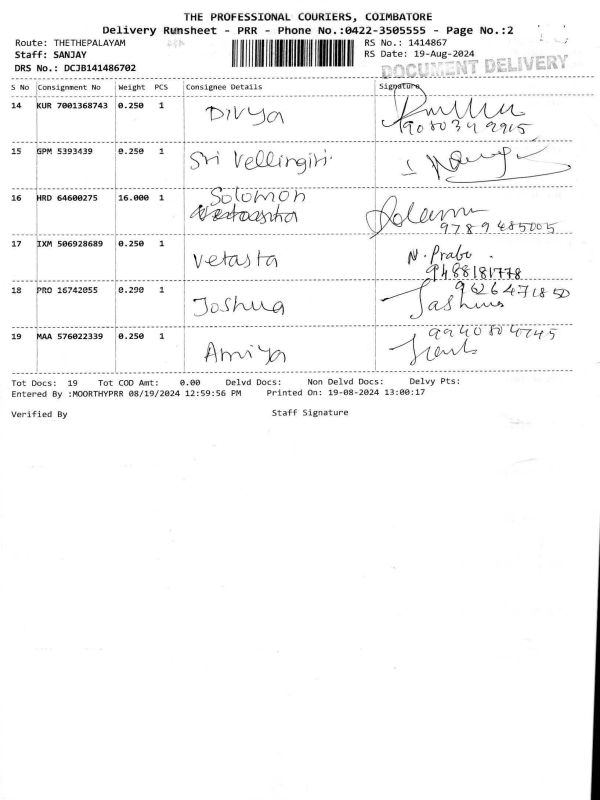 THE PROFESSIONAL COURIERS, COIMBATORE
Delivery Runsheet - PRR - Phone No.:0422-3505555 - Page No.:2
Route: THETHEPALAYAM
RS No.: 1414867
Staff: SANJAY
RS Date: 19-Aug-2024
DRS No.: DCJB141486702
DOCUMENT DELIVERY
S No Consignment No Weight PCS Consignee Details Signature
14 KUR 7001368743 0.250 1 Divya
15 GPM 5393439 0.250 1 Sri Vellingiri
16 HRD 64600275 16.000 1 Solomon
9789485005
17 IXM 506928689 0.250 1 Vetasta N. Prabu
9488181778
18 PRO 16742055 0.290 1 Joshua 9626471850
Jashua
19 MAA 576022339 0.250 1 Amiya
Tot Docs: 19 Tot COD Amt: 0.00 Delvd Docs: Non Delvd Docs: Delvy Pts:
Entered By :MOORTHYPRR 08/19/2024 12:59:56 PM Printed On: 19-08-2024 13:00:17
Verified By Staff Signature